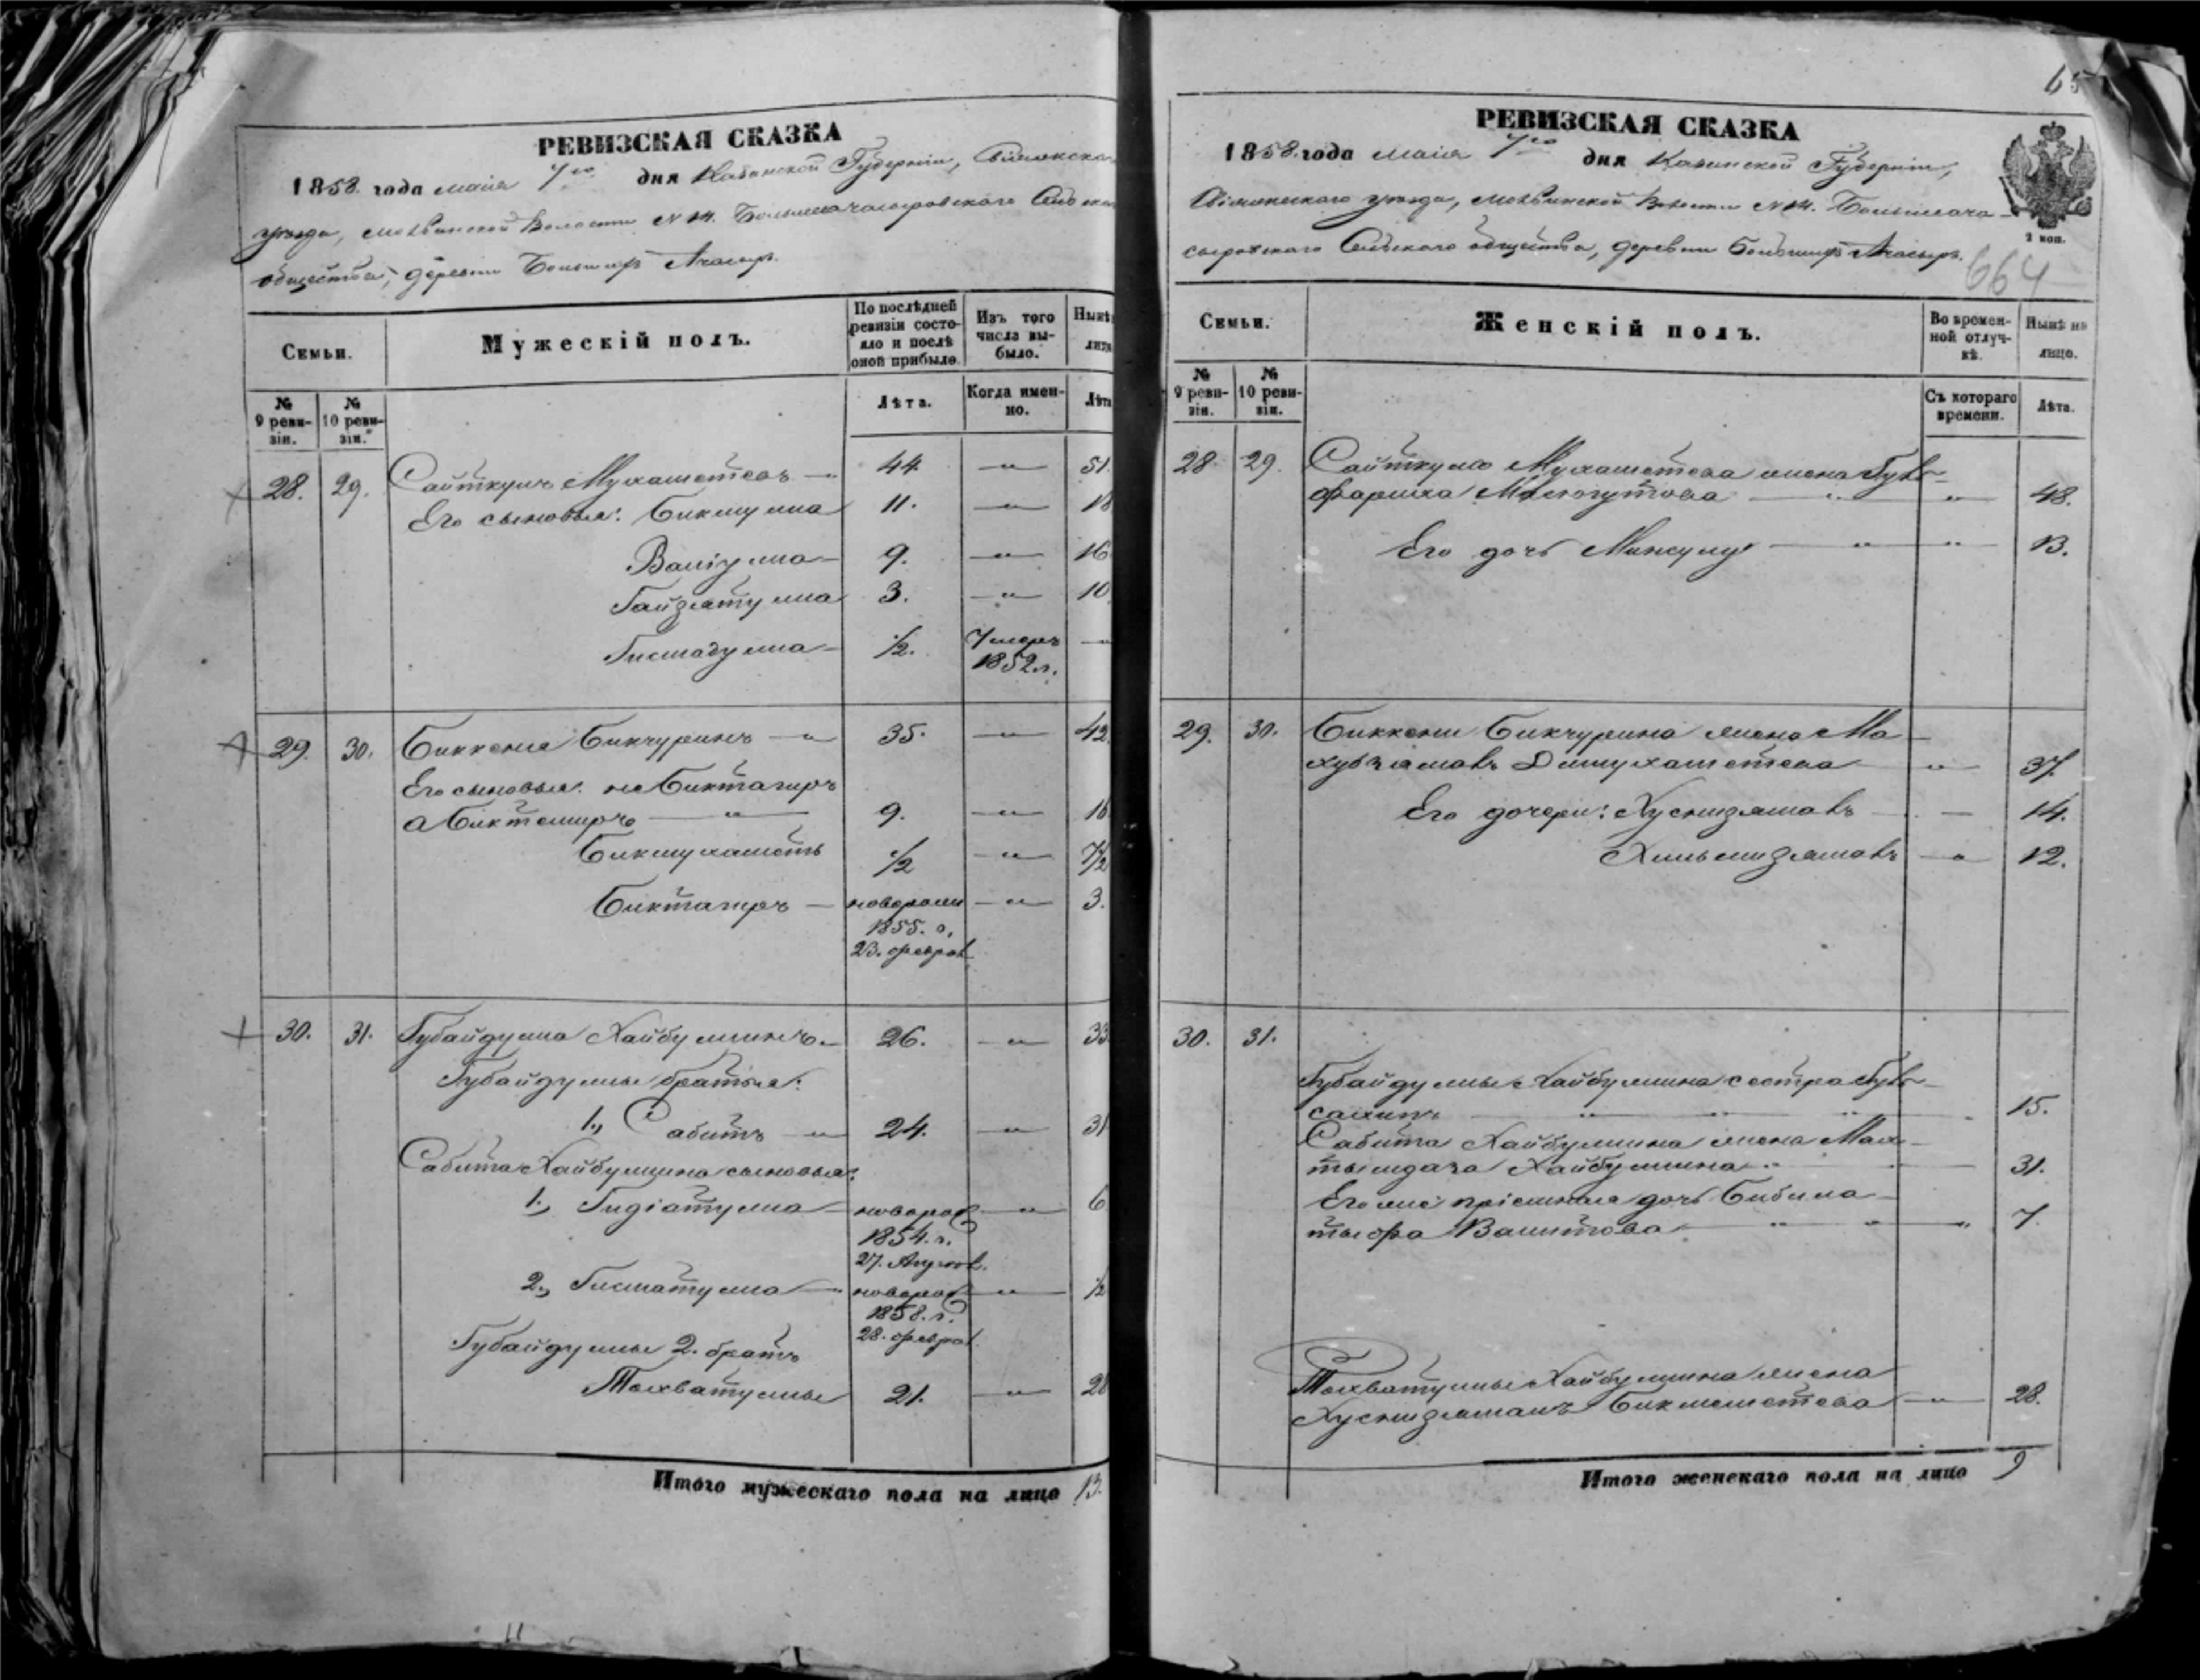 РЕВИЗСКАЯ СКАЗКА
1858 года маія 7го дня Казанской Губерніи, Свіяжска
уѣзда, Волости № 14. Большеачасыровскаго Сельска
общества, деревни Большихъ Ачасыръ.
Семьи.
Мужескій полъ.
По послѣдней ревизіи состояло и послѣ оной прибыло.
Изъ того числа выбыло.
Нынѣ
лицо
№ 9 ревизіи.
№ 10 ревизіи.
Лѣта.
Когда именно.
Лѣта
28. 29. Сайткулъ Мухаметевъ — 44 — „ — 51.
Его сыновья: Бикмулла 11. — „ — 18
Валіулла — 9. — „ — 16
Гайзатулла 3. — „ — 10
½. Умеръ —
1852 г.
29. 30. Биккеня Бикчуринъ — „ 35. — „ — 42.
Его сыновья: не Биктагиръ
а Биктемиръ — „ — 9. — „ — 16
Бикмухаметь ½ — „ — 7½
Биктагиръ — новорожд — „ — 3.
1855. г.
23. феврал
30. 31. Губайдулла Хайбуллинъ — 26. — „ — 33.
Губайдуллы братья:
1., Сабитъ — „ — 24. — „ — 31
Сабита Хайбуллина сыновья:
1., Гидіатулла — новорож — „ — 6
1854. г.
27. Август.
2., Гисматулла — новорож — „ — ½
1858. г.
28. феврал.
Губайдуллы 2. братъ
Тохватуллы 21. — „ — 28
Итого мужескаго пола на лицо 13.
65
РЕВИЗСКАЯ СКАЗКА
1858. года маія 7го дня Казанской Губерніи,
Свіяжскаго уѣзда, Волости № 14. Большеача-
сыровскаго Сельскаго общества, деревни Большихъ Ачасыръ.
2 коп.
664
Семьи.
Женскій полъ.
Во временной отлучкѣ.
Нынѣ на лицо.
№ 9 ревизіи.
№ 10 ревизіи.
Съ котораго времени.
Лѣта.
28 29. Сайткула Мухаметева жена Гуль-
фариха — „ — „ — 48.
Его дочь — „ — „ — 13.
29. 30. Биккени Бикчурина жена Ма-
Димухаметева — „ — 37.
Его дочери: Хуснизямалъ — 14.
— „ 12.
30. 31.
Губайдуллы Хайбуллина сестра Гуль-
— „ — „ — „ — 15.
Сабита Хайбуллина жена Мах-
Хайбуллина — „ — 31.
Его же пріемная дочь Бибила-
тыфа Валитова — „ — „ — „ 7.
Тохватуллы Хайбуллина жена
Хуснизямалъ Бикмеметева — „ — 28.
Итого женскаго пола на лицо 9